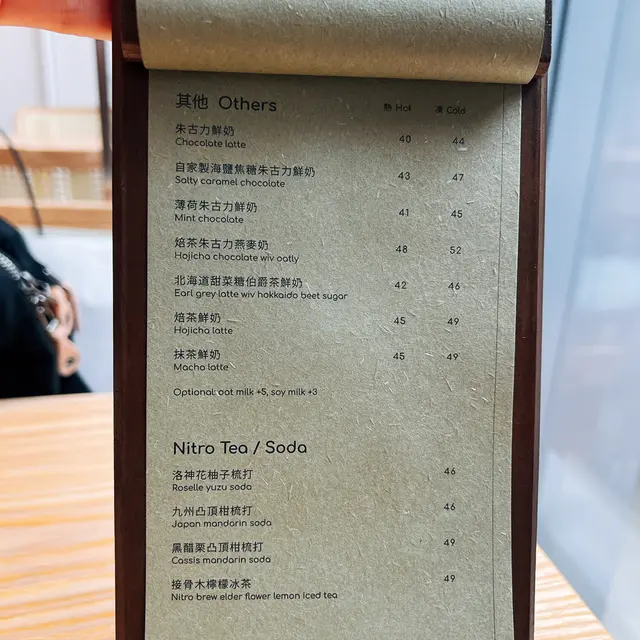 其他 Others 熱 Hot 凍 Cold
朱古力鮮奶
Chocolate latte 40 44
自家製海鹽焦糖朱古力鮮奶
Salty caramel chocolate 43 47
薄荷朱古力鮮奶
Mint chocolate 41 45
焙茶朱古力燕麥奶
Hojicha chocolate wiv oatly 48 52
北海道甜菜糖伯爵茶鮮奶
Earl grey latte wiv hokkaido beet sugar 42 46
焙茶鮮奶
Hojicha latte 45 49
抹茶鮮奶
Macha latte 45 49
Optional: oat milk +5, soy milk +3
Nitro Tea / Soda
洛神花柚子梳打 46
Roselle yuzu soda
九州凸頂柑梳打 46
Japan mandarin soda
黑醋栗凸頂柑梳打 49
Cassis mandarin soda
接骨木檸檬冰茶 49
Nitro brew elder flower lemon iced tea